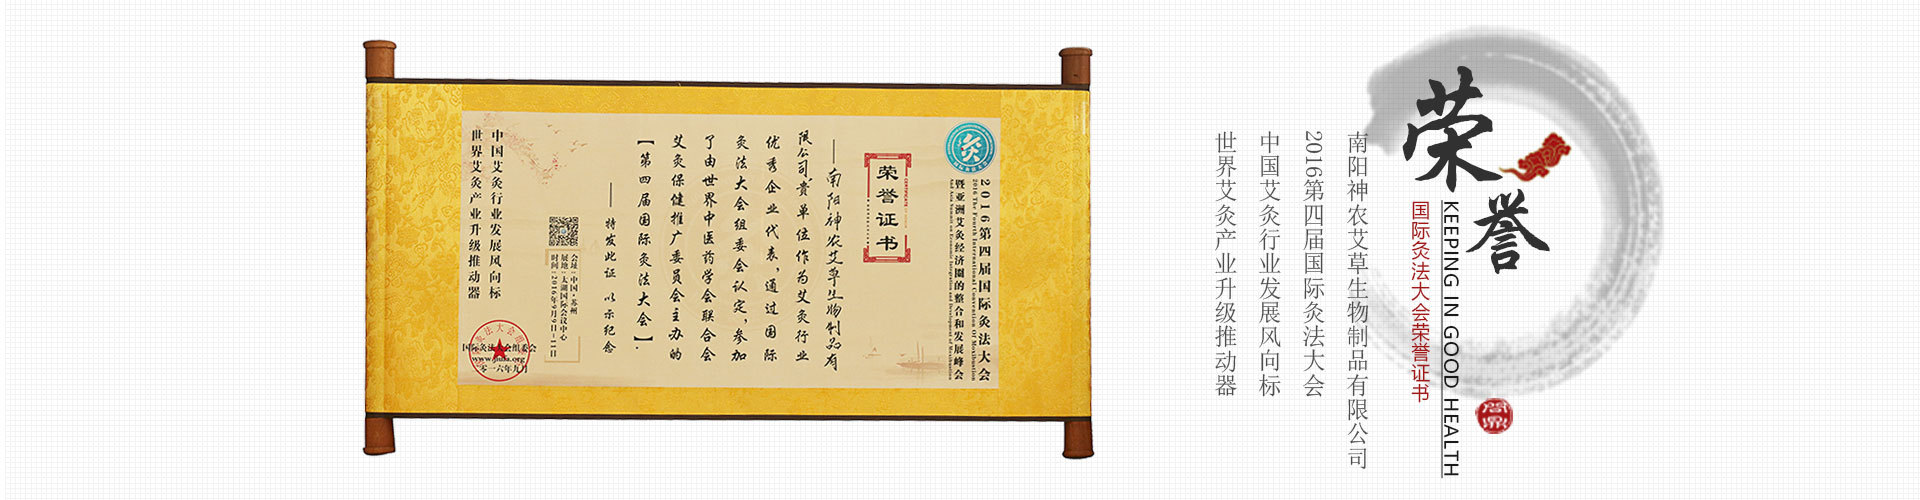 荣誉
国际灸法大会荣誉证书
KEEPING IN GOOD HEALTH
南阳神农艾草生物制品有限公司
2016第四届国际灸法大会
中国艾灸行业发展风向标
世界艾灸产业升级推动器
灸
2016第四届国际灸法大会
2016 The Fourth International Convention Of Moxibustion
暨亚洲艾灸经济圈的整合和发展峰会
And Asia Summit on Economic Integration and Development of Moxibustion
荣誉证书
CERTIFICATE
——南阳神农艾草生物制品有
限公司贵单位作为艾灸行业
优秀企业代表，通过国际
灸法大会组委会认定，参加
了由世界中医药学会联合会
艾灸保健推广委员会主办的
【第四届国际灸法大会】.
——特发此证 以示纪念
会址:中国·苏州
展地:太湖国际会议中心
时间:2016年9月9日-11日
中国艾灸行业发展风向标
世界艾灸产业升级推动器
国际灸法大会组委会
二零一六年九月